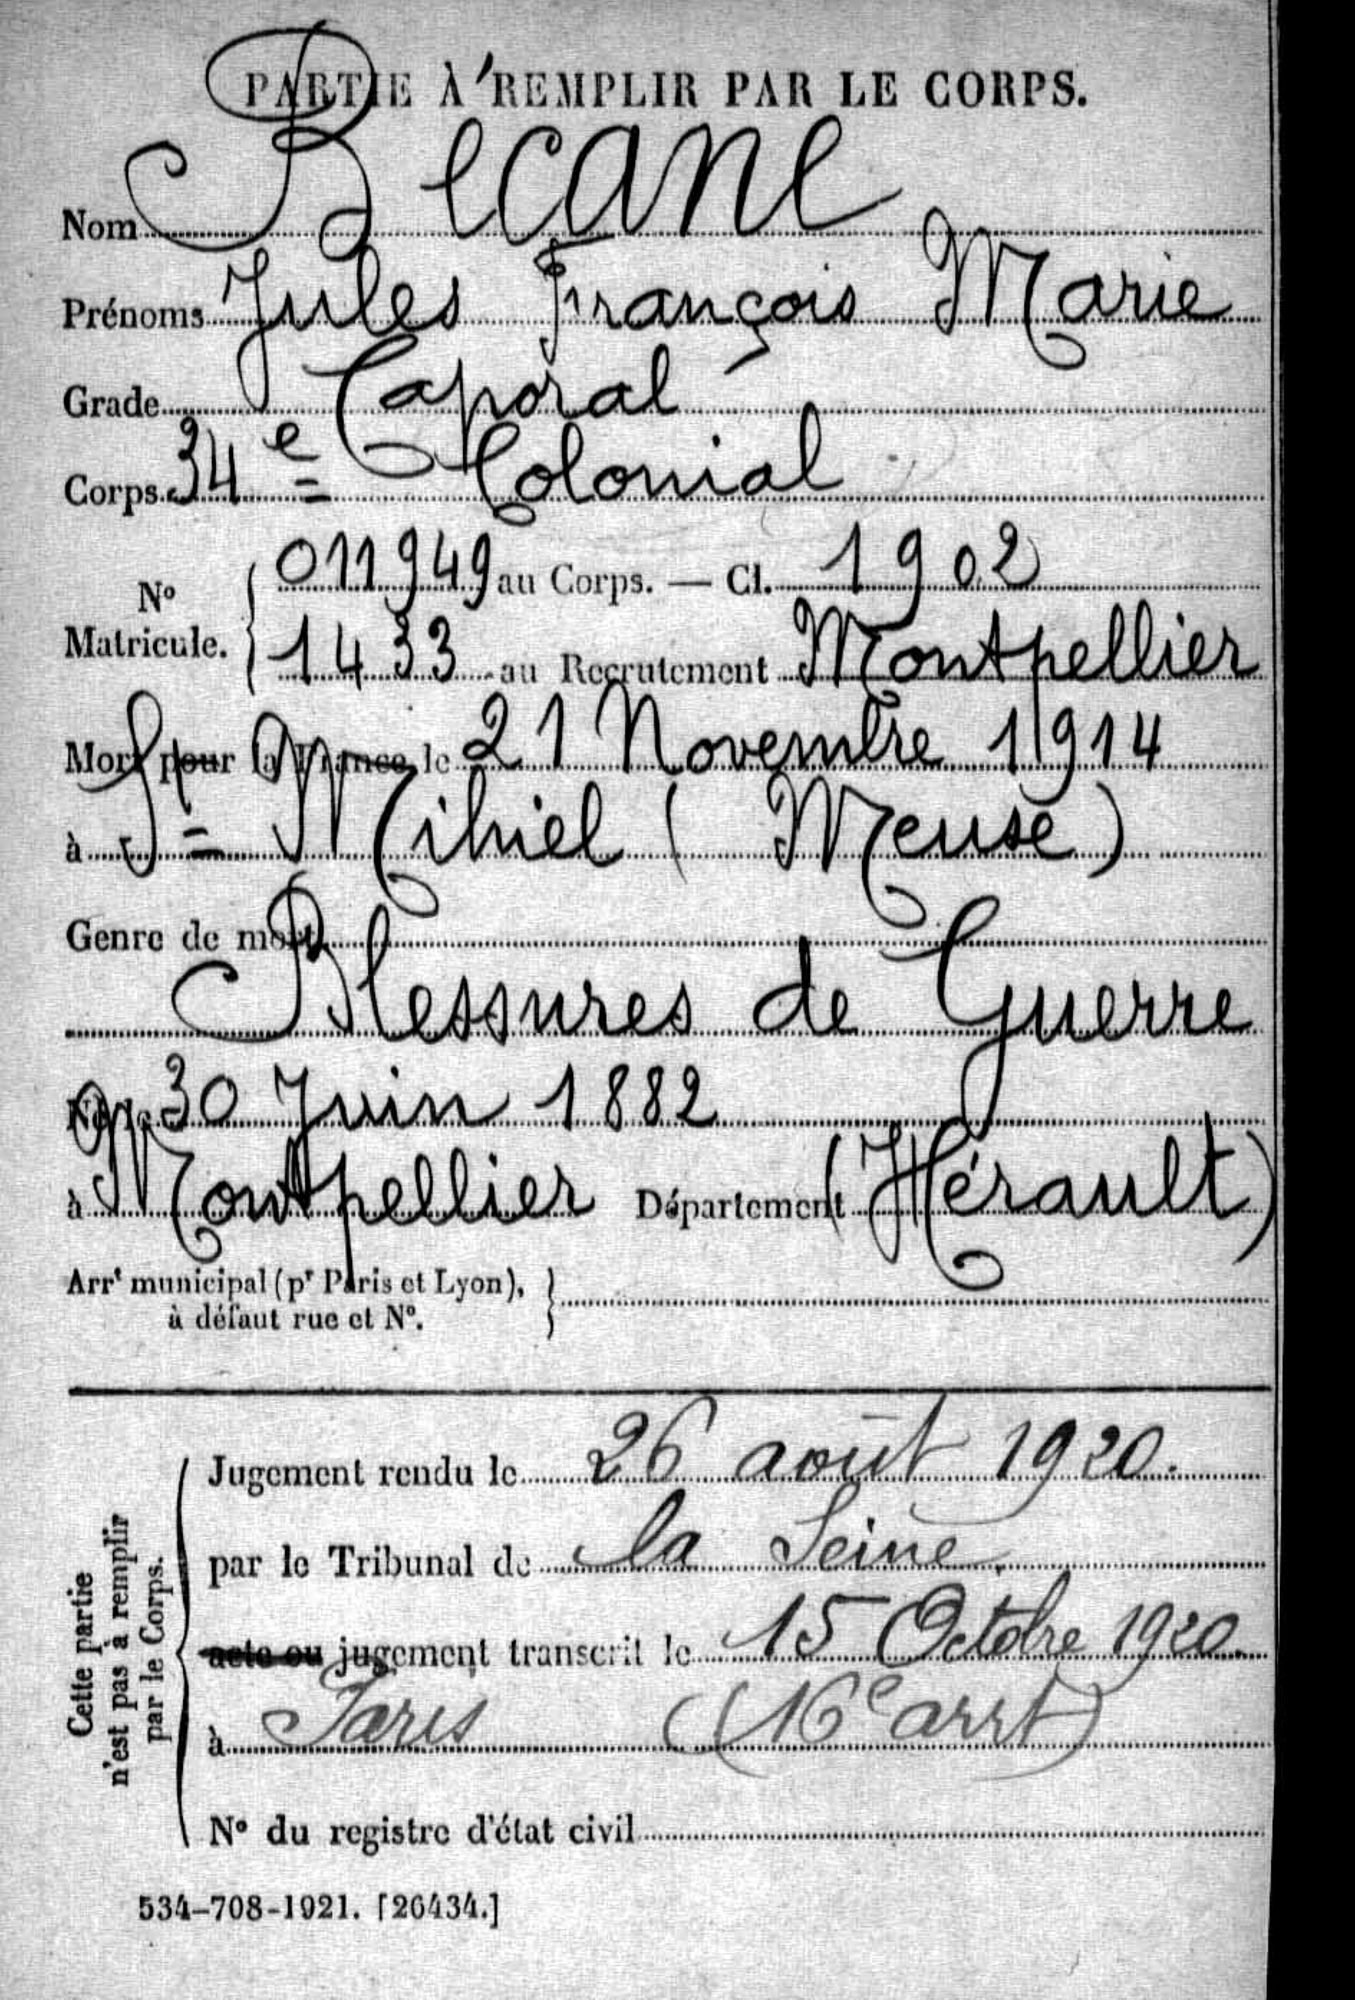 PARTIE À REMPLIR PAR LE CORPS.
Nom Becane
Prénoms Jules François Marie
Grade Caporal
Corps 34e Colonial
No Matricule. { 011949 au Corps. — Cl. 1902
1433 au Recrutement Montpellier
Mort pour la France le 21 Novembre 1914
à St Mihiel (Meuse)
Genre de mort
Blessures de Guerre
Né le 30 Juin 1882
à Montpellier Département (Hérault)
Arrt municipal (pr Paris et Lyon), à défaut rue et No. }
Cette partie n'est pas à remplir par le Corps.
Jugement rendu le 26 août 1920.
par le Tribunal de la Seine.
acte ou jugement transcrit le 15 Octobre 1920.
à Paris (16e arrt)
No du registre d'état civil
534-708-1921. [26434.]